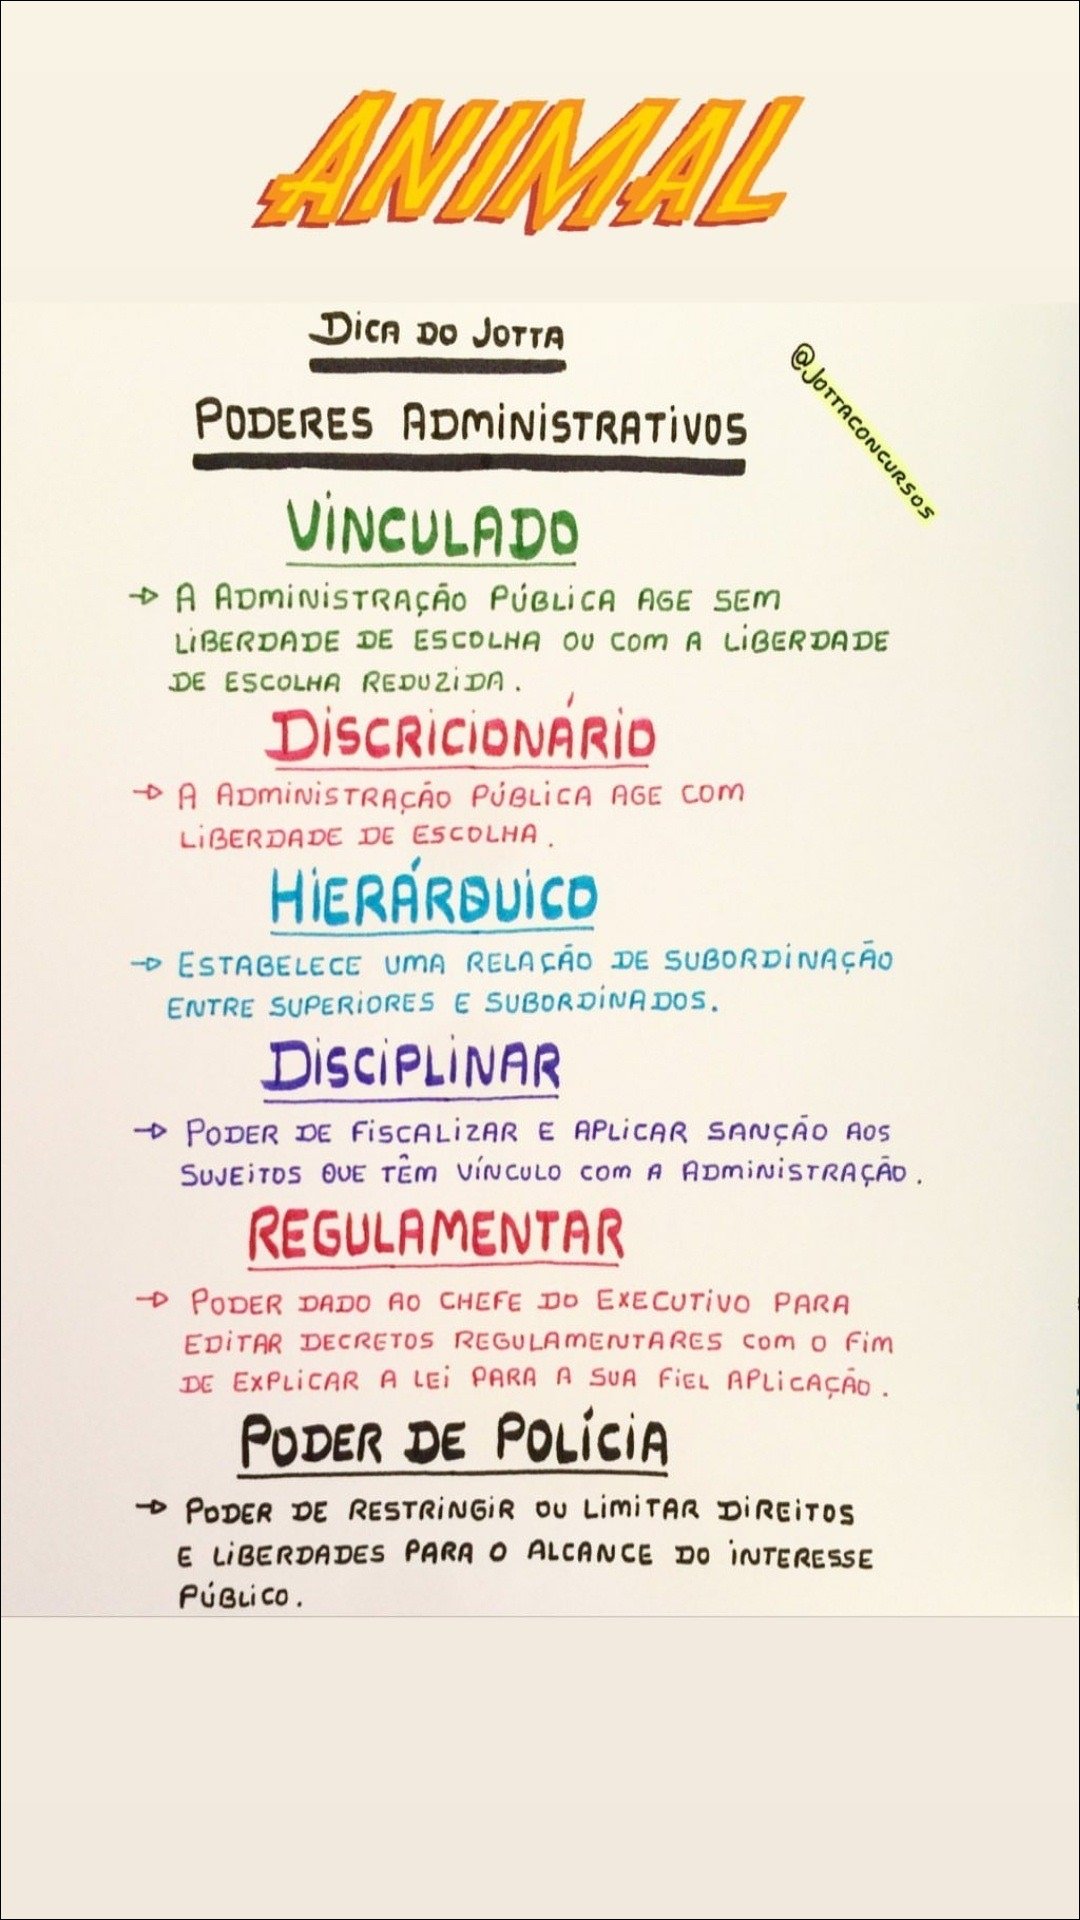 ANIMAL
Dica do Jotta
Poderes Administrativos
@jottaconcursos
Vinculado
→ A Administração Pública age sem
liberdade de escolha ou com a liberdade
de escolha reduzida.
Discricionário
→ A Administração Pública age com
liberdade de escolha.
Hierárquico
→ Estabelece uma relação de subordinação
entre superiores e subordinados.
Disciplinar
→ Poder de fiscalizar e aplicar sanção aos
sujeitos que têm vínculo com a Administração.
Regulamentar
→ Poder dado ao chefe do Executivo para
editar decretos regulamentares com o fim
de explicar a lei para a sua fiel aplicação.
Poder de Polícia
→ Poder de restringir ou limitar direitos
e liberdades para o alcance do interesse
público.